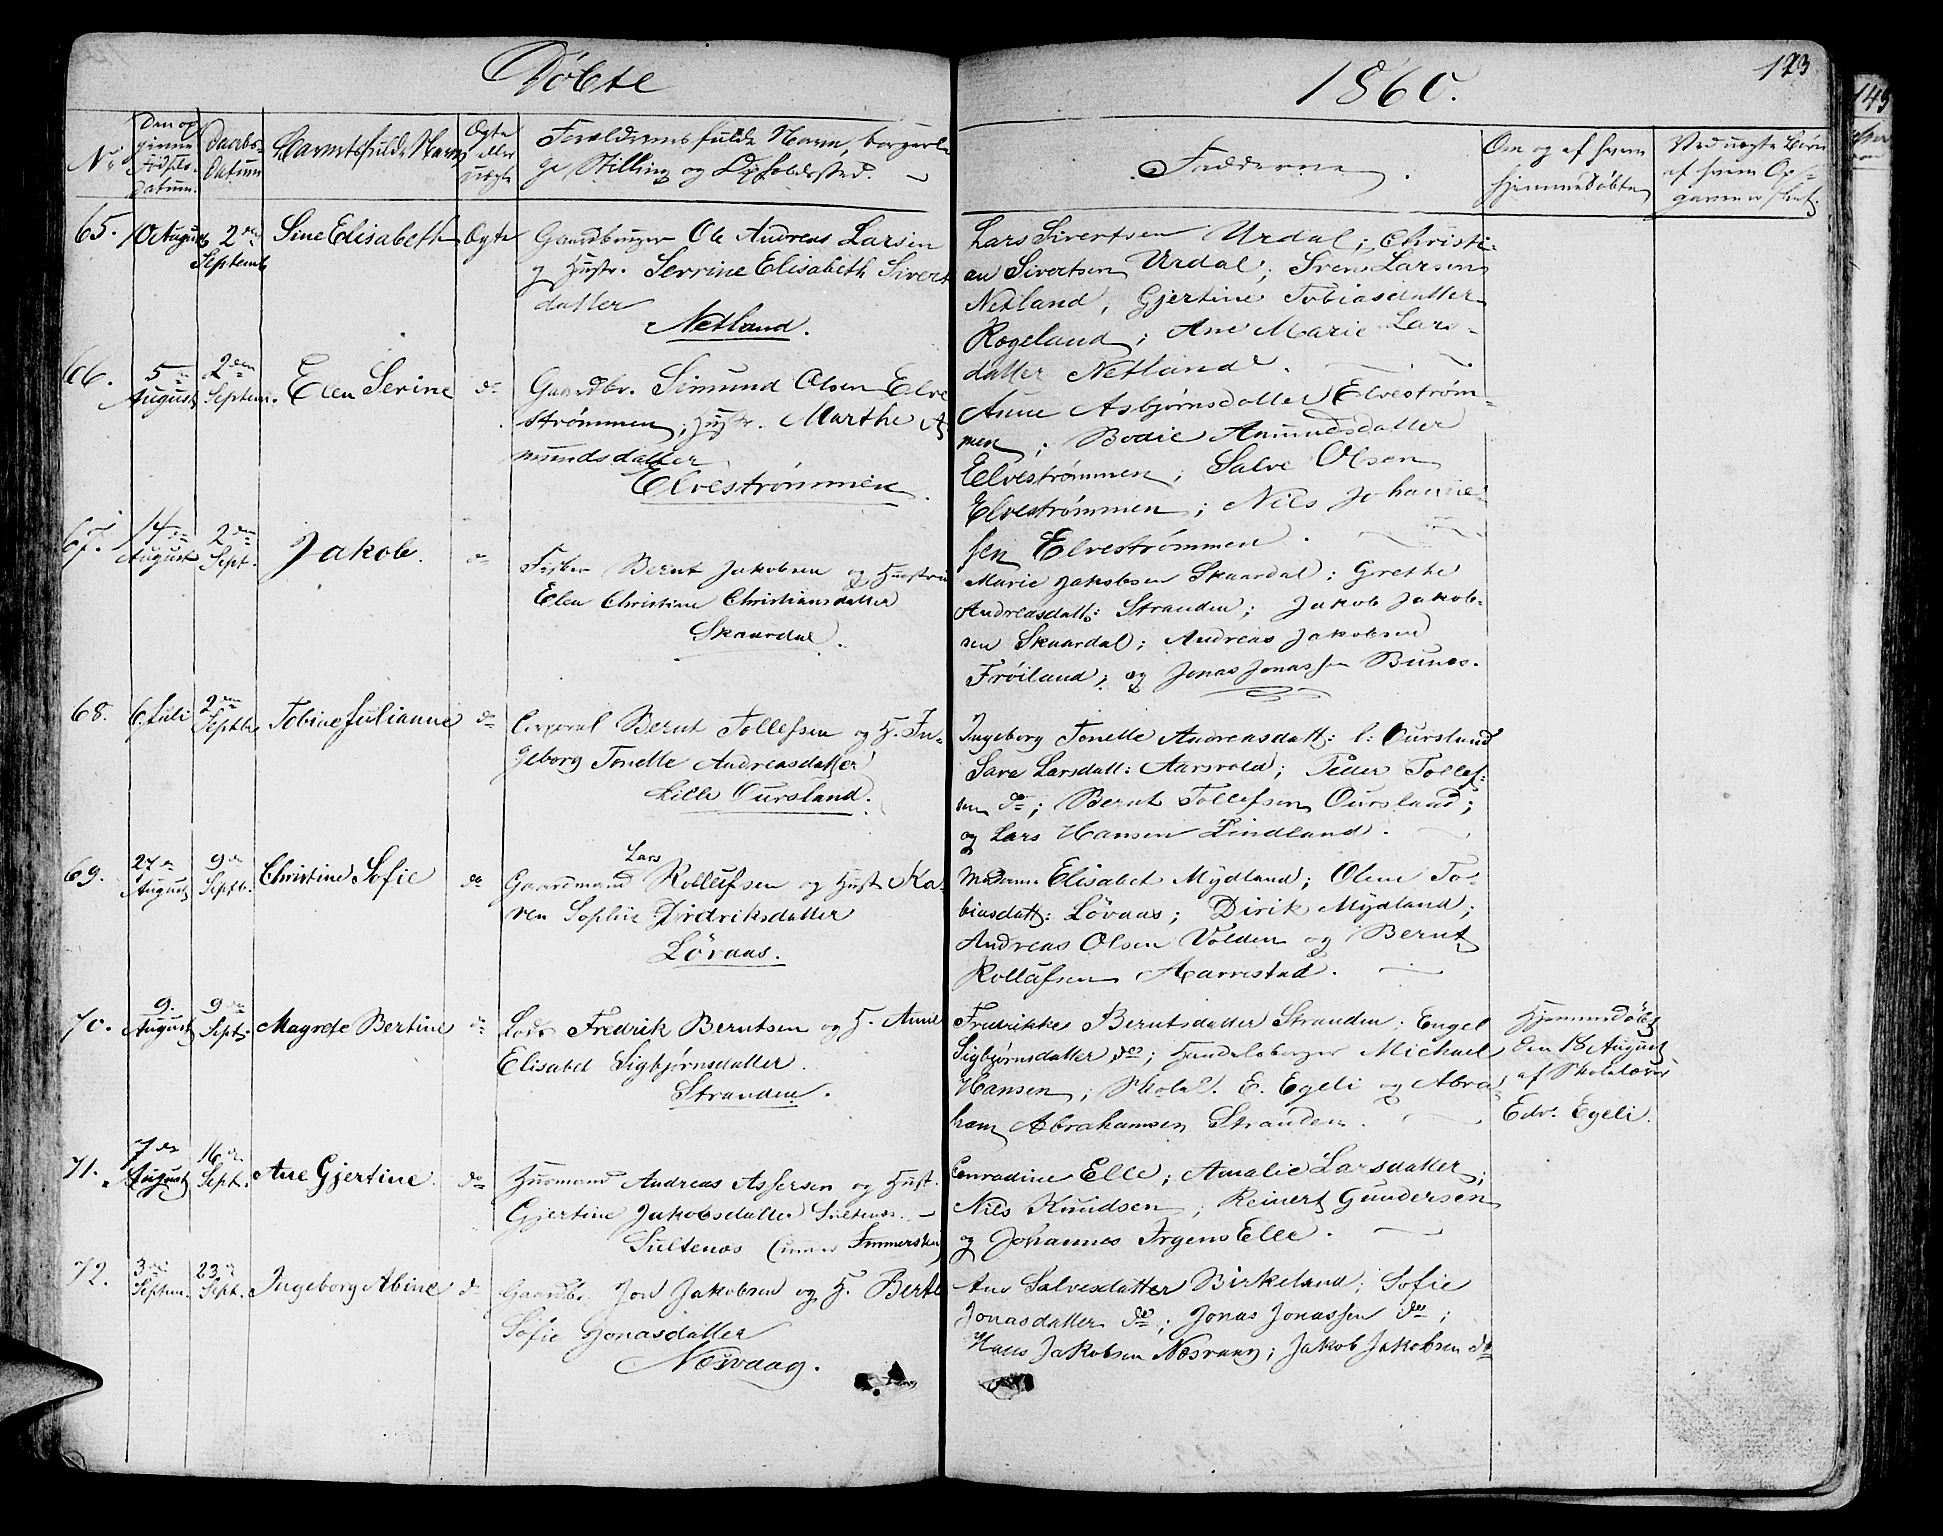 Döbte
1860.
123
No
Den op
givne
Födsels
Datum.
Daabs-
Datum
Barnets fulde Navn
Ægte
eller
uægte
Forældrenes fulde Navn, borgerli
ge Stilling og Opholdssted.
Fadderne.
Om og af hvem
hjemmedøbte
Ved uægte Børn
af hvem Op-
gaven er skeet.
65.
10 August
2den
Septemb
Sine Elisabeth
Ægte
Gaardbruger Ole Andreas Larsen
og Hustr. Serrine Elisabeth Sivert
datter
Netland.
Lars Sivertsen Urdal; Christi-
an Sivertsen Urdal; Svend Larsen
Netland, Gjertine Tobiasdatter
Rogeland; Ane Marie Lars-
datter Netland.
66.
5te
August
2den
Septem.
Elen Serine
do
Gaardbr. Simund Olsen Elve
strømmen, Hustr. Marthe As
mundsdatter
Elvestrømmen.
Anne Asbjørnsdatter Elvestrøm-
men; Bodil Asmundsdatter
Elvestrømmen; Salve Olsen
Elvestrømmen; Nils Johanne-
sen Elvestrømmen.
67.
14de
August
2den
Sept.
Jakob.
do
Fisker Bernt Jakobsen og Hustru
Elen Christine Christiansdatter
Skaardal.
Marie Jakobsen Skaardal; Grethe
Andreasdatt: Stranden; Jakob Jakob-
sen Skaardal; Andreas Jakobsen
Frøiland; og Jonas Jonassen Bunes.
68.
6. Juli
2den
Septbr
Tobine Julianne
do
Corporal Bernt Tollefsen og H. In-
geborg Tonette Andreasdatter
Lille Oursland.
Ingeborg Tonette Andreasdatt: l: Oursland
Sara Larsdatt: Aarsvold; Peder Tollef-
sen do; Bernt Tollefsen Oursland;
og Lars Hansen Lindland.
69.
27de
August
9de
Septb.
Christine Sofie
do
Lars
Gaardmand Rolleifsen og Hust. Ka-
ren Sophie Didriksdatter
Lövaas.
Madame Elisabet Mydland; Olene To-
biasdatt: Lövaas; Dirik Mydland;
Andreas Olsen Volden og Bernt
Rolleifsen Aarrestad.
70.
9.
August
9de
Sept.
Magrete Bertine
do
Lods Fredrik Berntsen og H. Anne
Elisabet Sigbjørnsdatter.
Stranden.
Fredrikke Berntsdatter Stranden; Engel
Sigbjørnsdatter do; Handelsborger Michael
Hansen; Skolel. E. Egeli og Abra-
ham Abrahamsen Stranden.
Hjemmedøbt
den 18 August
af Skolelærer
Edv. Egeli.
71.
7de
August
16de
Sept.
Ane Gjertine.
do
Husmand Andreas Assersen og Hust.
Gjertine Jakobsdatter Sultenæs.
Sultenæs
Conradine Elle; Amalie Larsdatter;
Nils Knudsen; Reinert Gundersen
og Johannes Irgens Elle.
72.
3die
Septem.
23de
Sept.
Ingeborg Abine
do
Gaardbr. Jon Jakobsen og H. Berte
Sofie Jonasdatter
Nesvaag.
Ane Salvesdatter Birkeland; Sofie
Jonasdatter do; Jonas Jonassen do;
Hans Jakobsen Nesvaag; Jakob Jakobsen do